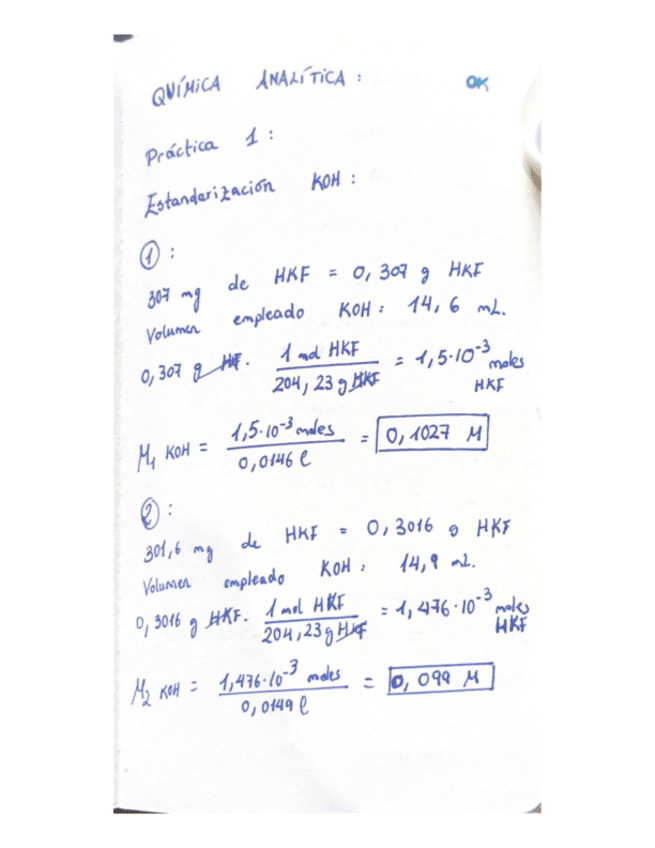 QUÍMICA ANALÍTICA : OK
Práctica 1 :
Estandarización KOH :
① :
307 mg de HKF = 0,307 g HKF
Volumen empleado KOH : 14,6 mL.
0,307 g HKF. 1 mol HKF / 204,23 g HKF = 1,5·10⁻³ moles HKF
M₁ KOH = 1,5·10⁻³ moles / 0,0146 l = 0,1027 M
② :
301,6 mg de HKF = 0,3016 g HKF
Volumen empleado KOH : 14,9 mL.
0,3016 g HKF. 1 mol HKF / 204,23 g HKF = 1,476·10⁻³ moles HKF
M₂ KOH = 1,476·10⁻³ moles / 0,0149 l = 0,099 M